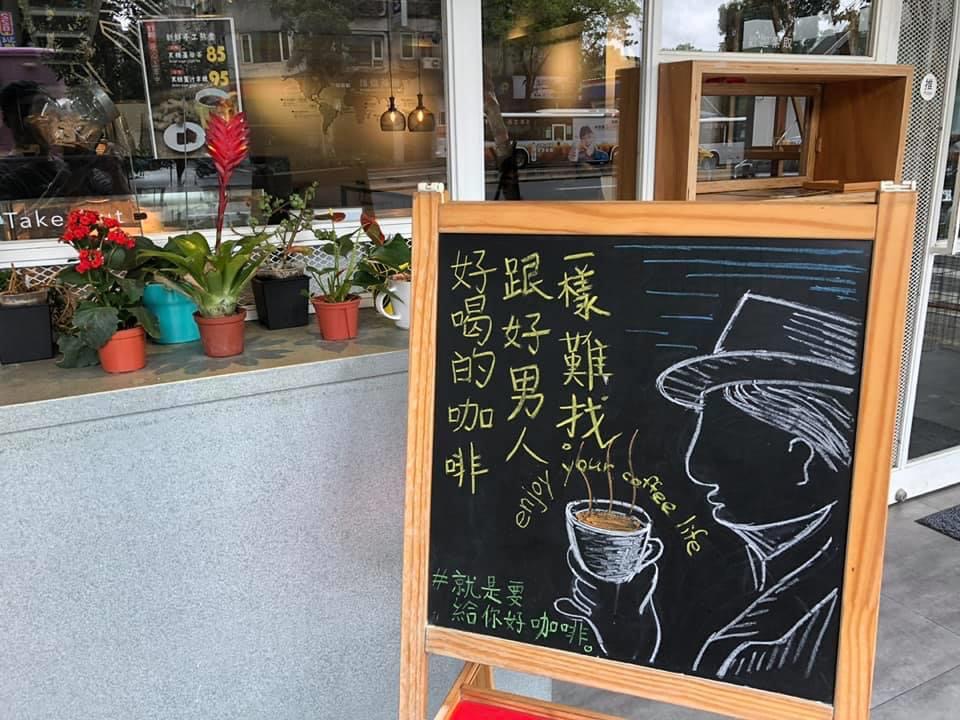 好喝的咖啡
跟好男人
一樣難找。
enjoy your coffee life
#就是要
給你好咖啡。
85
95
Take Out
推